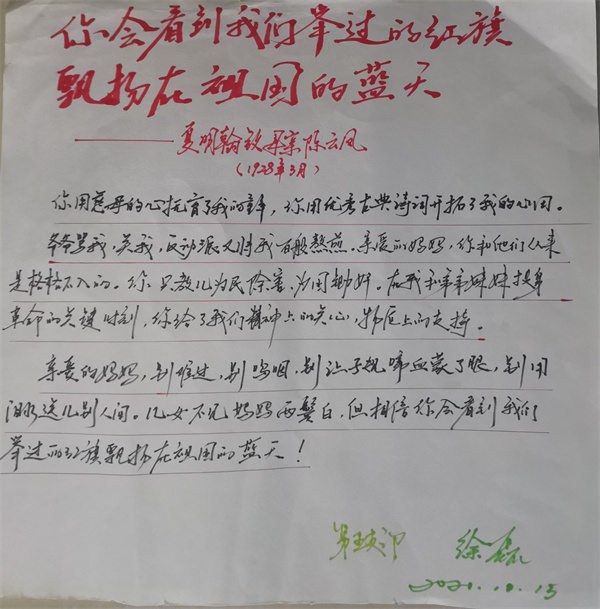 你会看到我们举过的红旗
飘扬在祖国的蓝天
——夏明翰致母亲陈云凤
(1928年3月)
你用慈母的心抚育了我的童年，你用优秀古典诗词开拓了我的心田。
爷爷骂我、关我，反动派又将我百般熬煎。亲爱的妈妈，你和他们从来
是格格不入的。你只教儿为民除害、为国锄奸。在我和弟弟妹妹投身
革命的关键时刻，你给了我们精神上的关心，物质上的支持。
亲爱的妈妈，别难过，别呜咽，别让子规啼血蒙了眼，别用
泪水送儿别人间。儿女不见妈妈两鬓白，但相信你会看到我们
举过的红旗飘扬在祖国的蓝天！
徐磊
2021.10.15